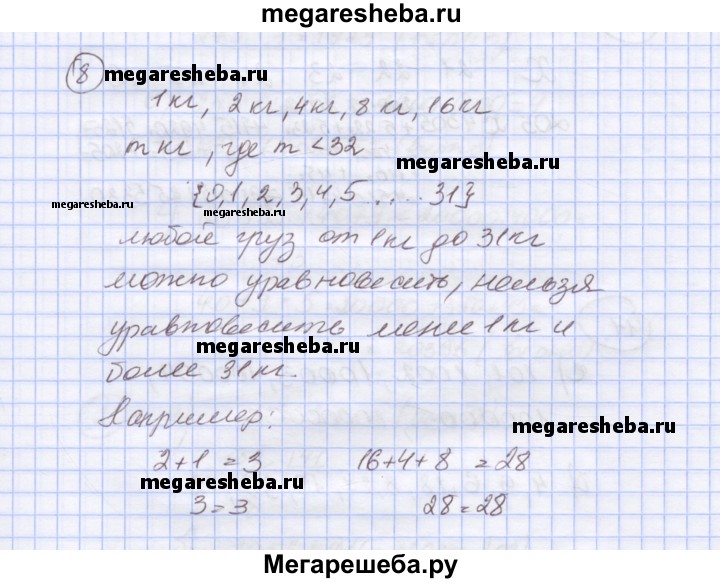 megaresheba.ru
8 megaresheba.ru
1 кг, 2 кг, 4 кг, 8 кг, 16 кг
m кг, где m < 32
megaresheba.ru
{0,1,2,3,4,5 .... 31}
megaresheba.ru
megaresheba.ru
любой груз от 1 кг до 31 кг
можно уравновесить, нельзя
уравновесить мене 1 кг и
megaresheba.ru
более 31 кг.
Например:
megaresheba.ru
2+1 = 3 16+4+8 = 28
megaresheba.ru
3 = 3 28 = 28
Мегарешеба.ру